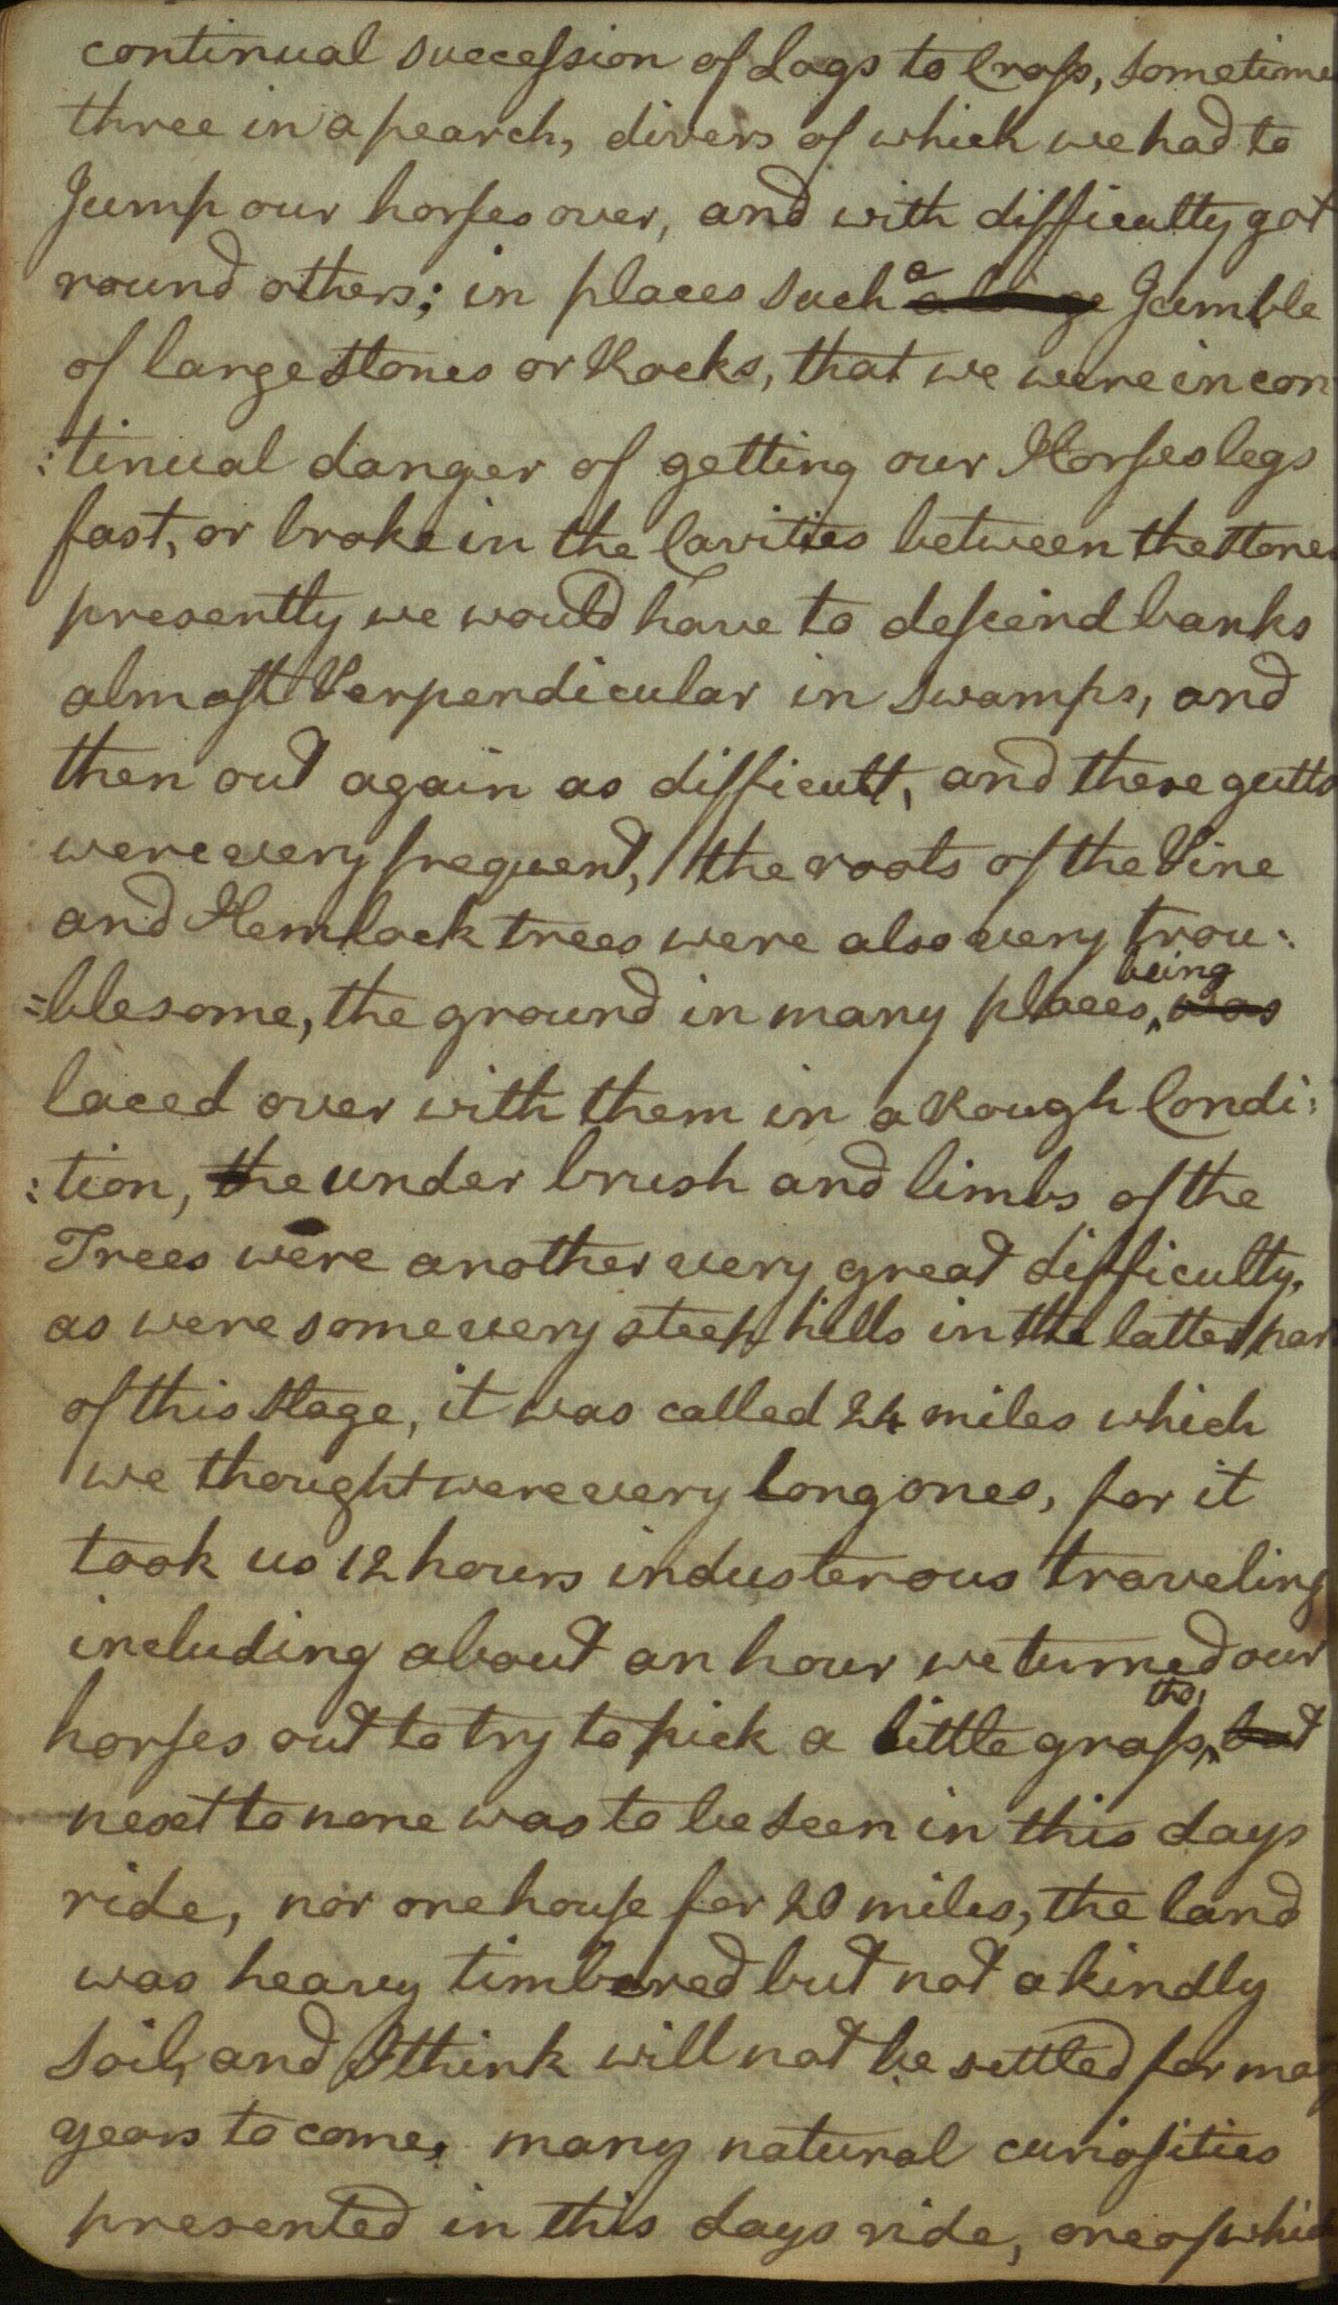 continual succeſsion of Logs to Croſs, sometime
three in a pearch, divers of which we had to
Jump our horſes over, and with difficulty got
round others; in places such a Jumble
of large stones or Rocks, that we were in con
:tinual danger of getting our Horſes legs
fast, or broke in the Cavities between the stones
presently we would have to deſcend banks
almoſt Perpendicular in swamps, and
then out again as difficult, and these gutts
were very frequent, the roots of the Pine
and Hemlock trees were also very trou:
=blesome, the ground in many places, being was
laced over with them in a Rough Condi:
:tion, the under brush and limbs of the
Trees were another very great difficulty,
as were some very steep hills in the latter par
of this stage, it was called 24 miles which
we thought were very long ones, for it
took us 12 hours industerous traveling
including about an hour we turned our
horſes out to try to pick a little graſs, tho, but
next to none was to be seen in this days
ride, nor one houſe for 20 miles, the land
was heavy timbered but not a kindly
soil, and I think will not be settled for
years to come, many natural curioſities
presented in this days ride, one of whic